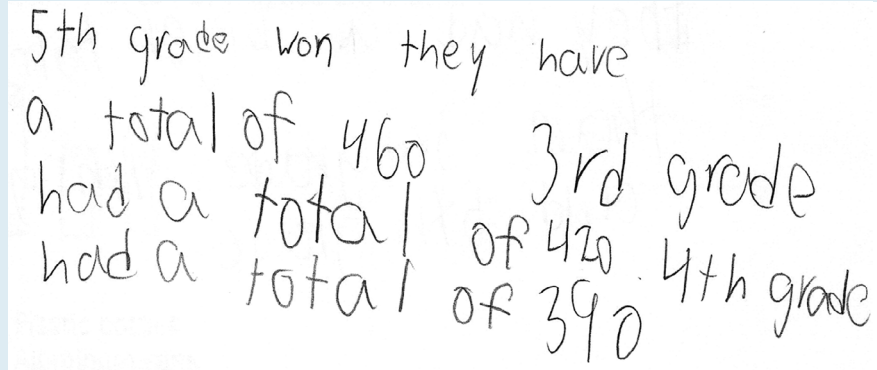 5th grade won they have
a total of 460 3rd grade
had a total of 420 4th grade
had a total of 390